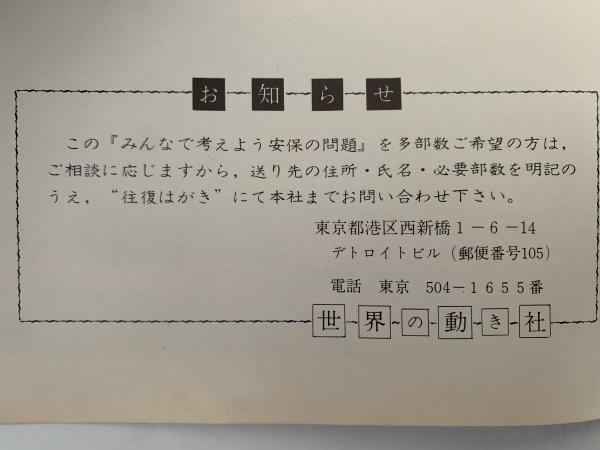 お知らせ
この『みんなで考えよう安保の問題』を多部数ご希望の方は，
ご相談に応じますから，送り先の住所・氏名・必要部数を明記の
うえ，“往復はがき”にて本社までお問い合わせ下さい。
東京都港区西新橋1－6－14
デトロイトビル（郵便番号105）
電話　東京　504－1655番
世界の動き社